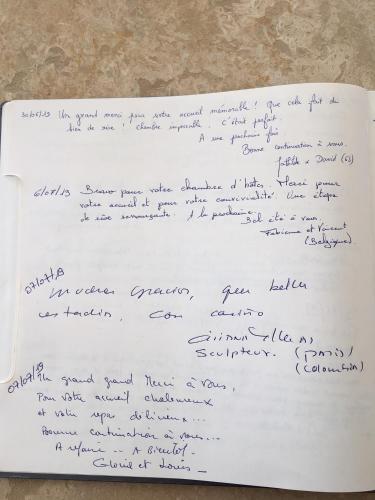 30/06/19 Un grand merci pour votre accueil mémorable ! Que cela fait du
bien de rire ! Chambre impeccable. C'était parfait.
A une prochaine fois
Bonne continuation à vous.
x David (63)
6/07/19 Bravo pour votre chambre d'hôtes. Merci pour
votre accueil et pour votre convivialité. Une étape
de rêve ressourçante. A la prochaine.
Bel été à vous.
Fabienne et Vincent
(Belgique)
07/07/19
Muchas gracias, que bella
estadia, con cariño
Sculpteur. (Paris)
(Colombia)
07/07/19 Un grand grand Merci à vous,
Pour votre accueil chaleureux
et votre repas délicieux...
Bonne continuation à vous...
A refaire ... A Bientôt.
et Louis -